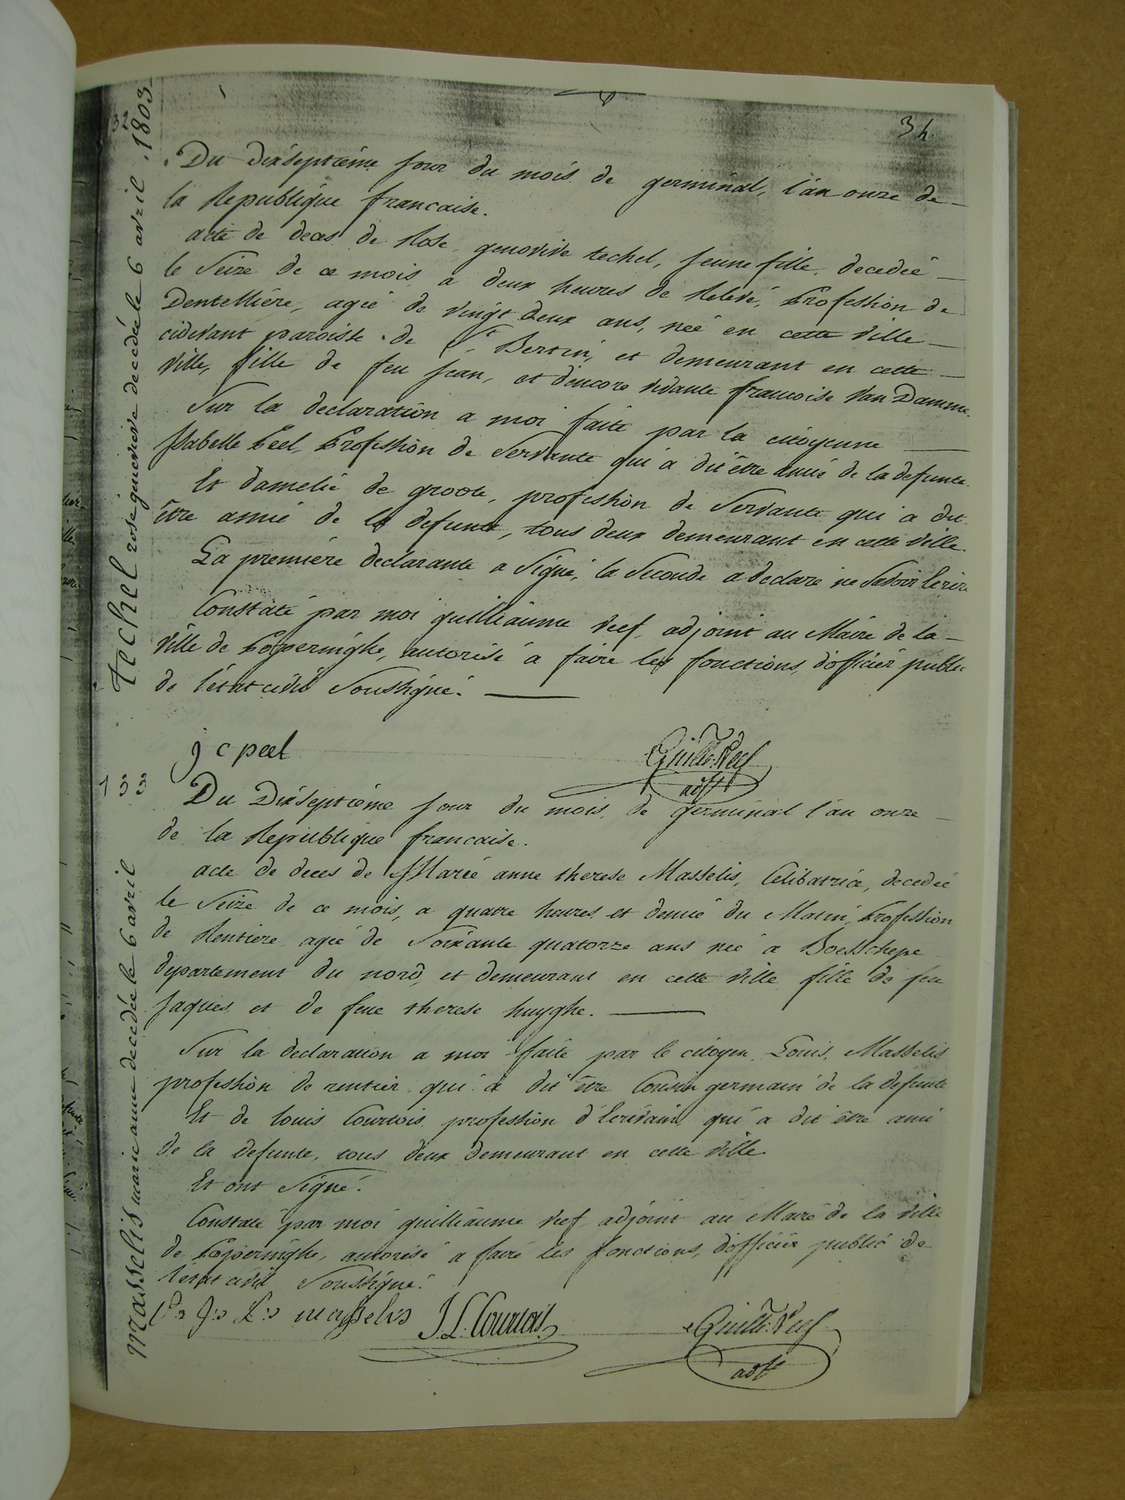 34
Du dixseptiéme jour du mois de germinal, l'an onze de
la Republique francaise.
acte de deces de Rose genovive techel, jeune fille, decedeé
le Seize de ce mois a deux heures de Relevé, Profession de
Dentelliére, ageé de vingt deux ans, neé en cette ville
cidevant paroisse de St Bertin, et demeurant en cette
ville, fille de feu jean, et d'encore vivante francoise Van Damme.
Sur la declaration a moi faite par la citoyenne
Isabelle Peel, Profession de Servante qui a dit être amié de la defunte
Et d'amelié de groote, profession de Servante qui a dit
être amié de la defunte, tous deux demeurant en cette ville.
La premiére declarante a Signé, la Seconde a declaré ne Savoir Ecrire
Constaté par moi guilliaume reef adjoint au Maire de la
ville de Poperinghe, autorisé a faire les fonctions, d'officier public
de l'état civil Soussigné.
j c peel
Guille: Reef
adjt
techel rose genevieve decedée le 6 avril 1803
133
Du Dixseptiéme jour du mois de germinal l'an onze
de la Republique francaise.
acte de deces de Marie anne therese Masselis, Celibatrice, decedeé
le Seize de ce mois, a quatre heures et demie du Matin, Profession
de Rentiere ageé de Soixante quatorze ans neé a Boesschepe
departement du nord, et demeurant en cette ville fille de feu
jaques et de feue therese huyghe.
Sur la declaration a moi faite par le citoyen Louis Masselis
profession de rentier qui a dit être Cousin germain de la defunte
Et de louis Courtois profession d'Ecrivain qui a dit être ami
de la defunte, tous deux demeurant en cette ville.
Et ont Signé.
Constaté par moi guilliaume reef adjoint au Maire de la ville
de Poperinghe, autorisé a faire les fonctions, d'officier public de
l'état civil Soussigné.
masselis
J. L. Courtois
Guille: Reef
adjt
masselis marie anne decedée le 6 avril